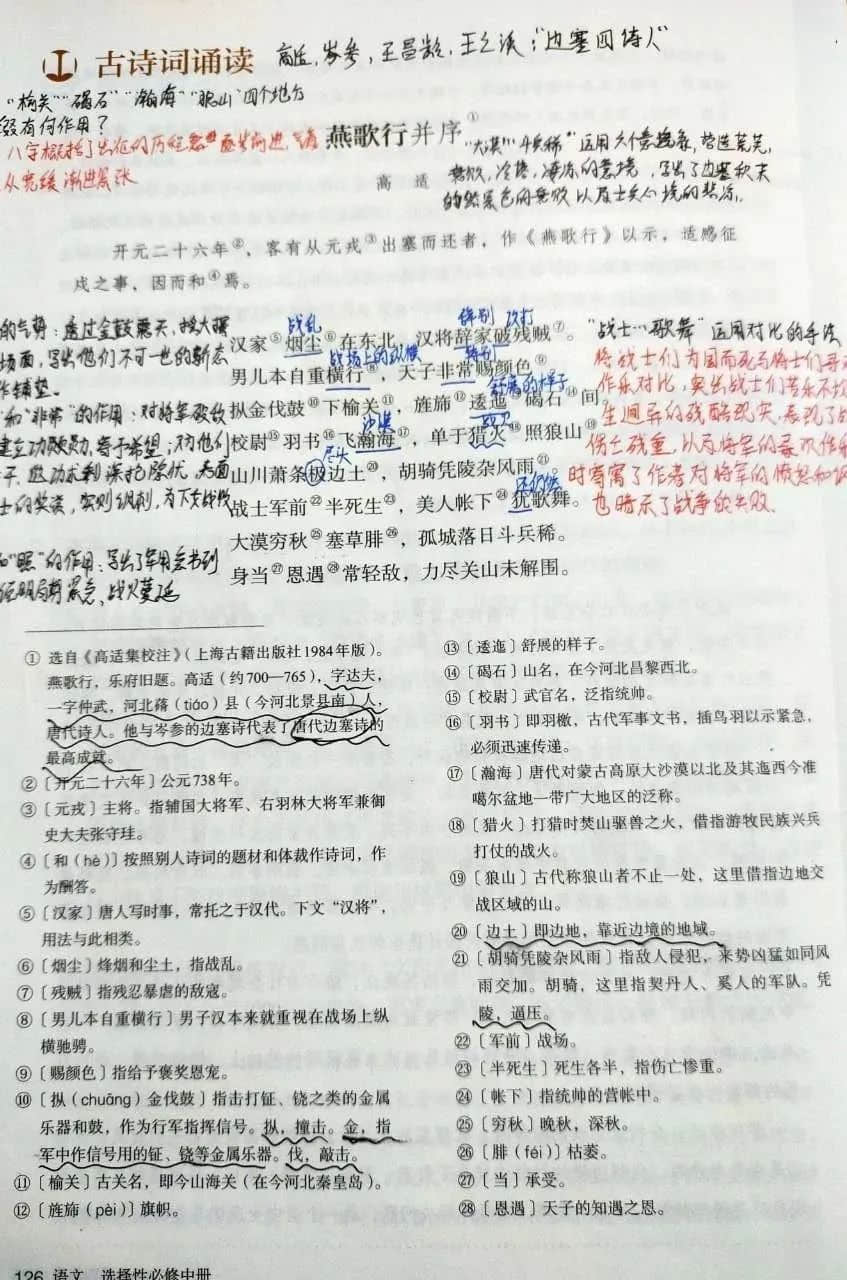 古诗词诵读
高适,岑参,王昌龄,王之涣:"边塞四诗人"
"榆关""碣石""瀚海""狼山"四个地名
有何作用?
燕歌行并序①
高 适
"大漠""斗兵稀"运用
开元二十六年②,客有从元戎③出塞而还者,作《燕歌行》以示,适感征
戍之事,因而和④焉。
战乱 辞别 攻打
汉家⑤烟尘⑥在东北,汉将辞家破残贼⑦。
战场上的纵横 特别
男儿本自重横行⑧,天子非常赐颜色⑨。
舒展的样子
摐金伐鼓⑩下榆关⑪,旌旆⑫逶迤⑬碣石⑭间。
沙漠
校尉⑮羽书⑯飞瀚海⑰,单于猎火⑱照狼山⑲。
尽头
山川萧条极边土⑳,胡骑凭陵杂风雨㉑。
还仍然
战士军前㉒半死生㉓,美人帐下㉔犹歌舞。
大漠穷秋㉕塞草腓㉖,孤城落日斗兵稀。
身当㉗恩遇㉘常轻敌,力尽关山未解围。
的气势:透过金鼓震天,
场面,写出他们不可一世的
作铺垫。
和"非常"的作用:对将军
和"照"的作用:写出了军用文书到
"战士…歌舞"运用对比的手法
将战士们为国而死与将士们寻
作乐对比,突出战士们苦乐不均
时寄寓了作者对将军的愤怒和
也暗示了战争的失败.
① 选自《高适集校注》(上海古籍出版社1984年版)。
燕歌行,乐府旧题。高适(约700—765),字达夫,
一字仲武,河北蓨(tiáo)县(今河北景县南)人,
唐代诗人。他与岑参的边塞诗代表了唐代边塞诗的
最高成就。
②〔开元二十六年〕公元738年。
③〔元戎〕主将。指辅国大将军、右羽林大将军兼御
史大夫张守珪。
④〔和(hè)〕按照别人诗词的题材和体裁作诗词,作
为酬答。
⑤〔汉家〕唐人写时事,常托之于汉代。下文"汉将",
用法与此相类。
⑥〔烟尘〕烽烟和尘土,指战乱。
⑦〔残贼〕指残忍暴虐的敌寇。
⑧〔男儿本自重横行〕男子汉本来就重视在战场上纵
横驰骋。
⑨〔赐颜色〕指给予褒奖恩宠。
⑩〔摐(chuāng)金伐鼓〕指击打钲、铙之类的金属
乐器和鼓,作为行军指挥信号。摐,撞击。金,指
军中作信号用的钲、铙等金属乐器。伐,敲击。
⑪〔榆关〕古关名,即今山海关(在今河北秦皇岛)。
⑫〔旌旆(pèi)〕旗帜。
⑬〔逶迤〕舒展的样子。
⑭〔碣石〕山名,在今河北昌黎西北。
⑮〔校尉〕武官名,泛指统帅。
⑯〔羽书〕即羽檄,古代军事文书,插鸟羽以示紧急,
必须迅速传递。
⑰〔瀚海〕唐代对蒙古高原大沙漠以北及其迤西今准
噶尔盆地一带广大地区的泛称。
⑱〔猎火〕打猎时焚山驱兽之火,借指游牧民族兴兵
打仗的战火。
⑲〔狼山〕古代称狼山者不止一处,这里借指边地交
战区域的山。
⑳〔边土〕即边地,靠近边境的地域。
㉑〔胡骑凭陵杂风雨〕指敌人侵犯,来势凶猛如同风
雨交加。胡骑,这里指契丹人、奚人的军队。凭
陵,逼压。
㉒〔军前〕战场。
㉓〔半死生〕死生各半,指伤亡惨重。
㉔〔帐下〕指统帅的营帐中。
㉕〔穷秋〕晚秋,深秋。
㉖〔腓(féi)〕枯萎。
㉗〔当〕承受。
㉘〔恩遇〕天子的知遇之恩。
126 语文 选择性必修中册